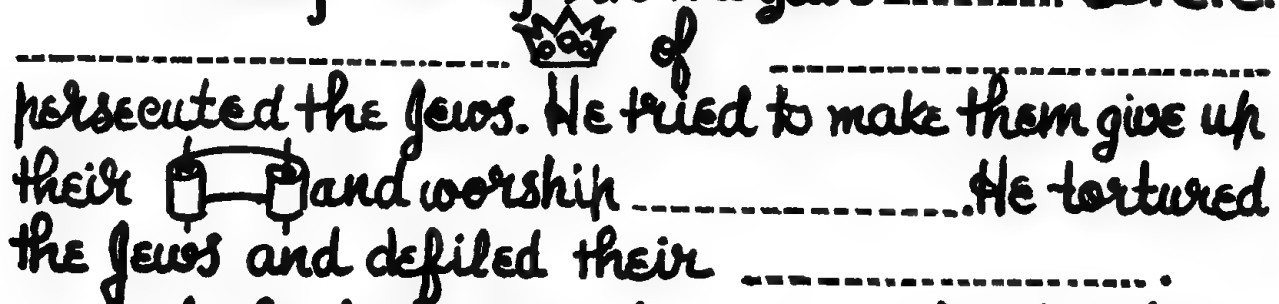 of
persecuted the Jews. He tried to make them give up
their and worship .He tortured
the Jews and defiled their .